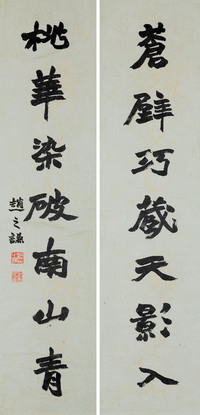 蒼壁巧藏天影入
桃華染破南山青
趙之謙